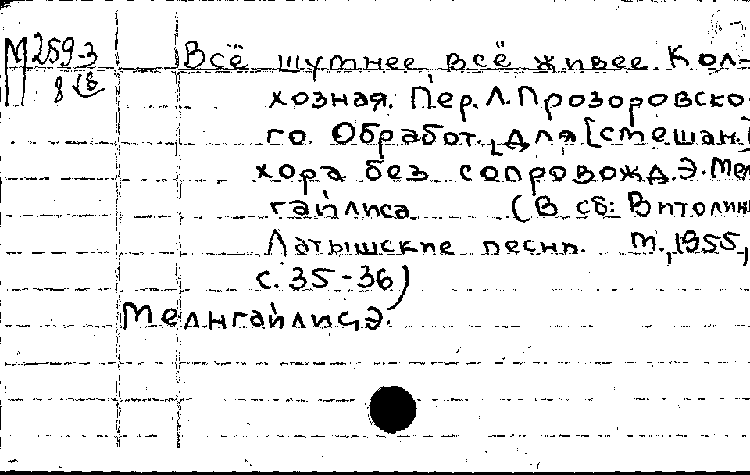 М259-3 Всё шумнее всё живее. Кол-
8 хозная. Пер. Л. Прозоровско
го. Обработ., для [смешан.]
хора без сопровожд. Э. Мел
гайлиса (В сб: Витолин
Латышские песни. М., 1955,
с. 35-36)
Мелнгайлис, Э.